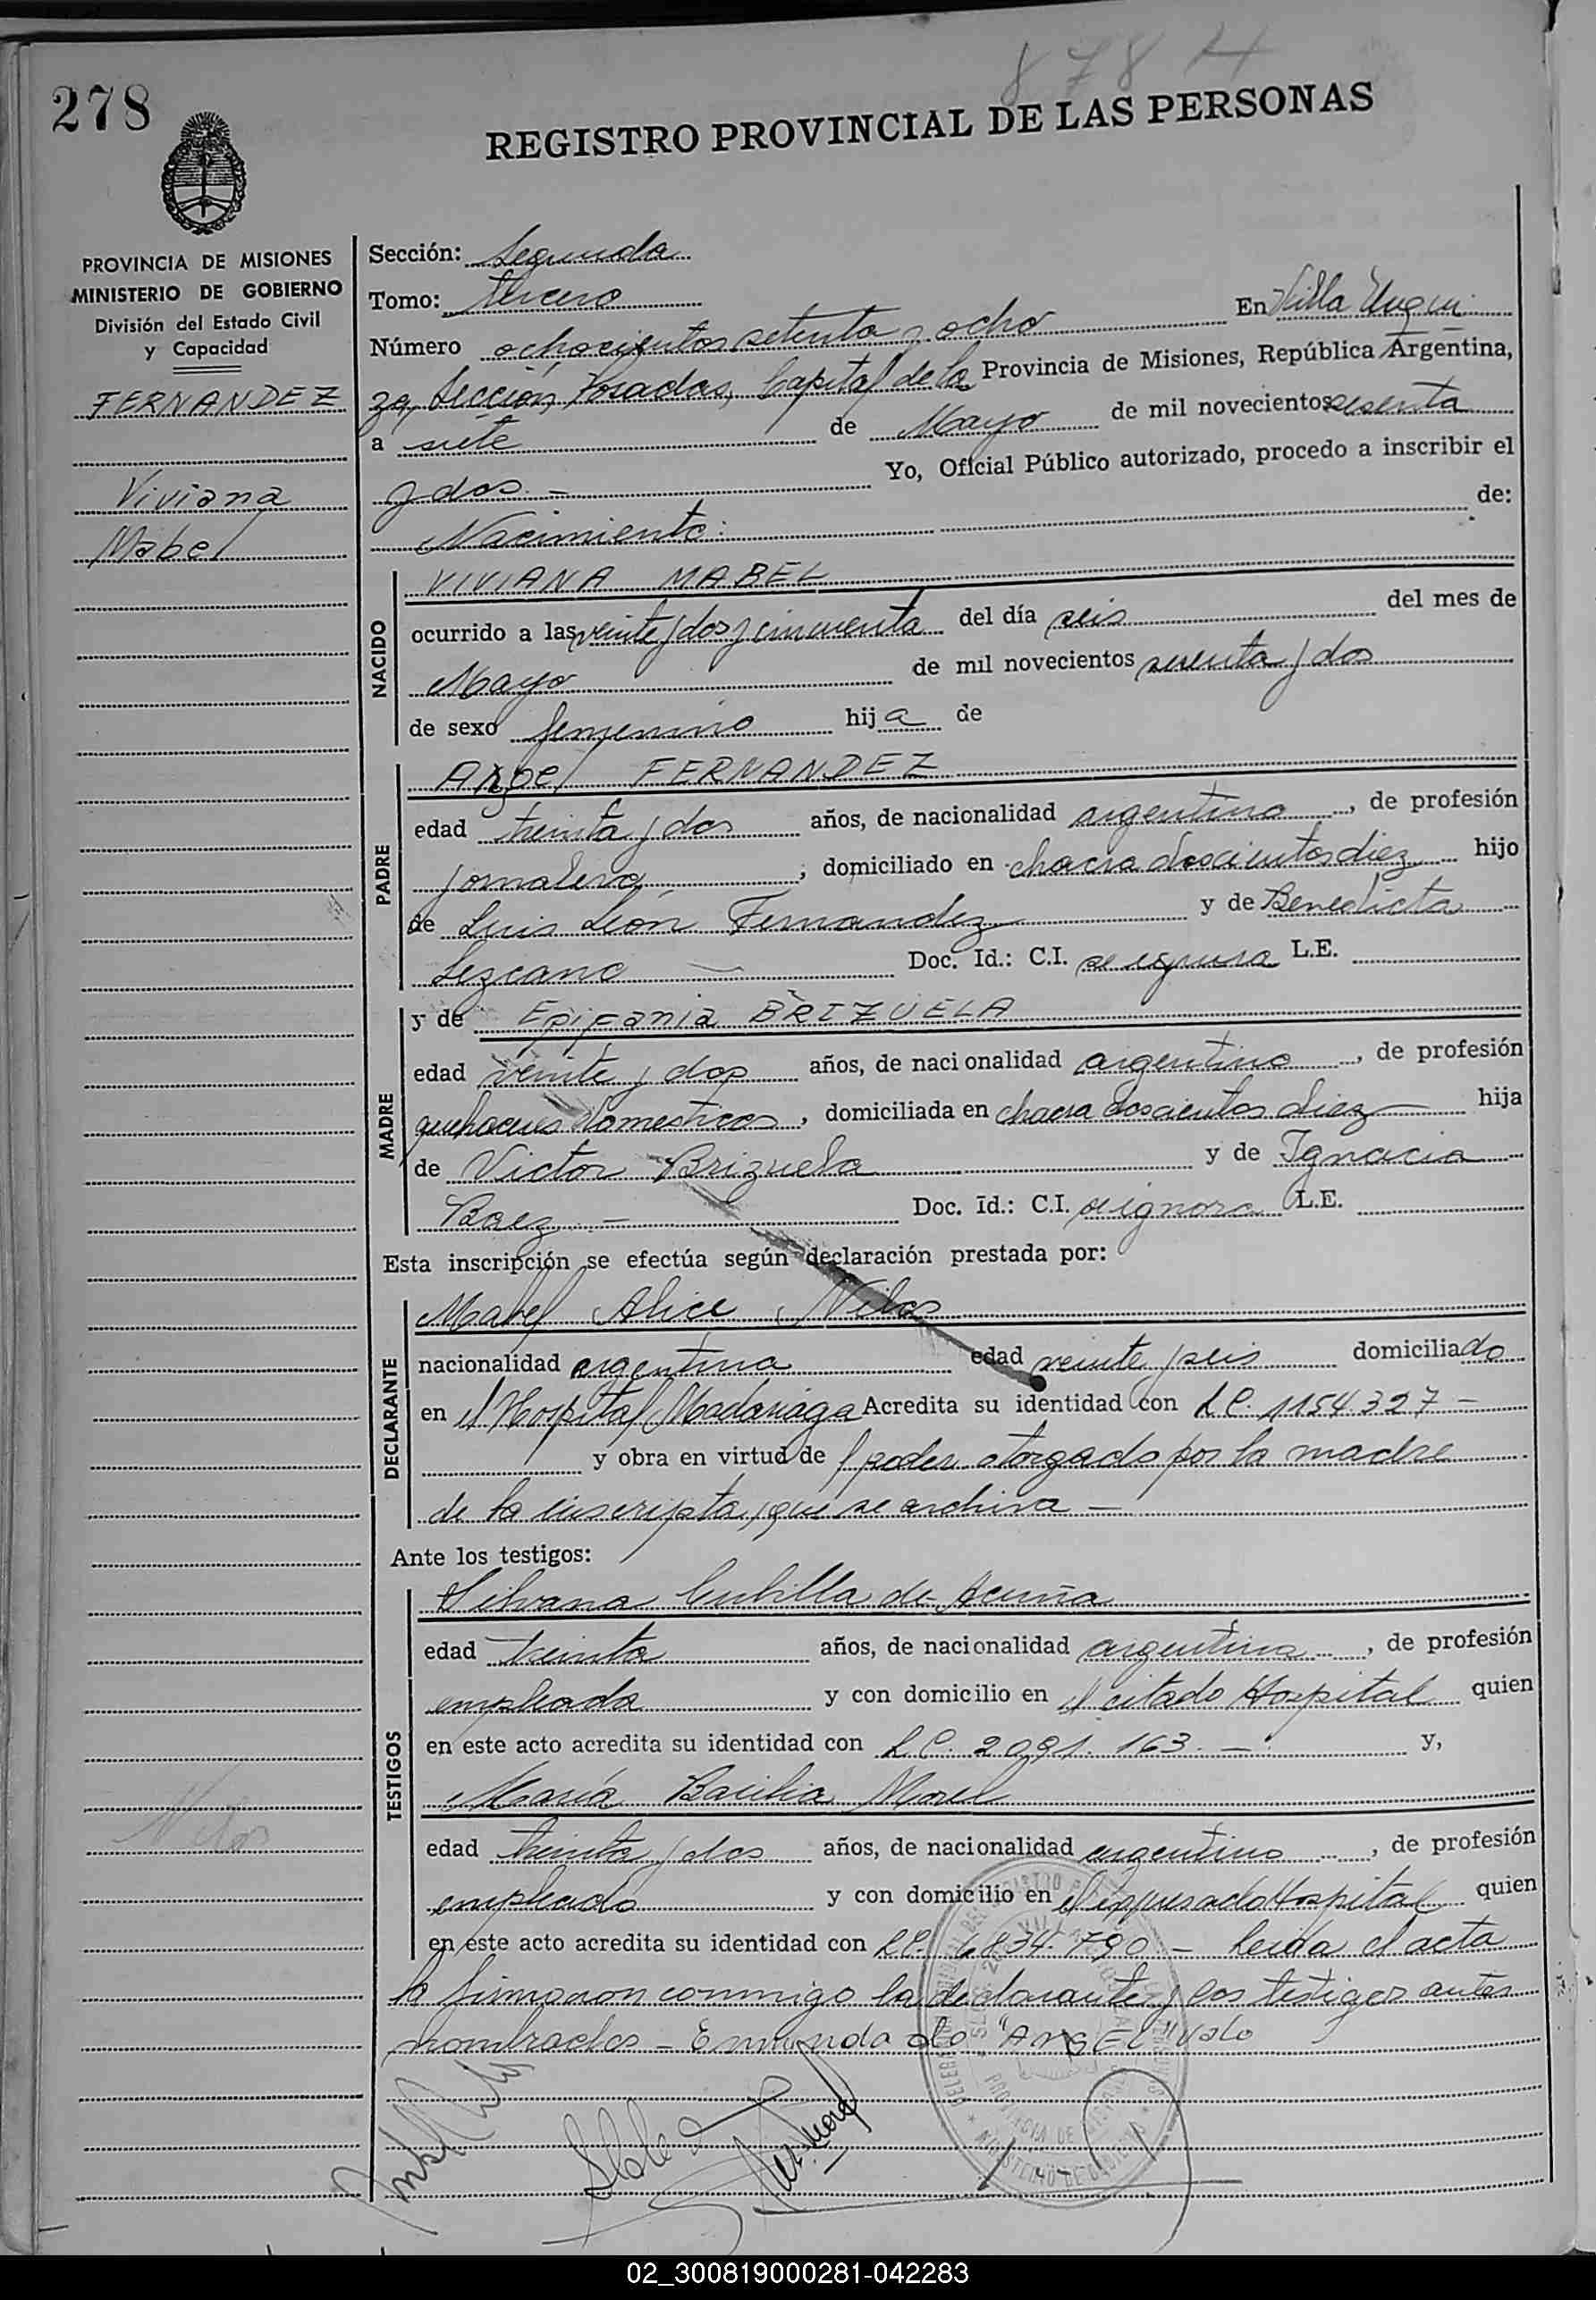 878 H
278
REGISTRO PROVINCIAL DE LAS PERSONAS
PROVINCIA DE MISIONES
MINISTERIO DE GOBIERNO
División del Estado Civil
y Capacidad
FERNANDEZ
Viviana
Mabel
Sección: Segunda
Tomo: tercero
Número ochocientos setenta y ocho En Villa Urqui
za, Sección, Posadas, Capital de la Provincia de Misiones, República Argentina,
a siete de Mayo de mil novecientos sesenta
y dos.- Yo, Oficial Público autorizado, procedo a inscribir el
Nacimiento: de:
NACIDO
VIVIANA MABEL
ocurrido a las veinte y dos y cincuenta del día seis del mes de
Mayo de mil novecientos sesenta y dos
de sexo femenino hija de
PADRE
Angel FERNANDEZ
edad treinta y dos años, de nacionalidad argentino, de profesión
jornalero, domiciliado en chacra doscientos diez hijo
de Luis León Fernandez y de Benedicta
Lezcano — Doc. Id.: C.I. se expresa L.E.
MADRE
y de Epifania BRIZUELA
edad veinte y dos años, de nacionalidad argentina, de profesión
quehaceres domesticos, domiciliada en chacra doscientos diez hija
de Victor Brizuela y de Ignacia
Baez.- Doc. Id.: C.I. se ignora L.E.
Esta inscripción se efectúa según declaración prestada por:
DECLARANTE
Mabel Alice Nilos
nacionalidad argentina edad veinte y seis domiciliado
en el Hospital Madariaga Acredita su identidad con L.C. 1154.327 -
y obra en virtud de poder otorgado por la madre
de la inscripta, que se archiva -
Ante los testigos:
TESTIGOS
Silvana Cubilla de Acuña
edad treinta años, de nacionalidad argentina, de profesión
empleada y con domicilio en el citado Hospital quien
en este acto acredita su identidad con L.C. 2091.163.- y,
María Basilia Morel
edad treinta y dos años, de nacionalidad argentina, de profesión
empleada y con domicilio en el expresado Hospital quien
en este acto acredita su identidad con L.C. 6834.790 - Leída el acta
la firmaron conmigo la declarante y los testigos antes
nombrados - Enmendado "ANGEL" Vale
Nilos
02_300819000281-042283